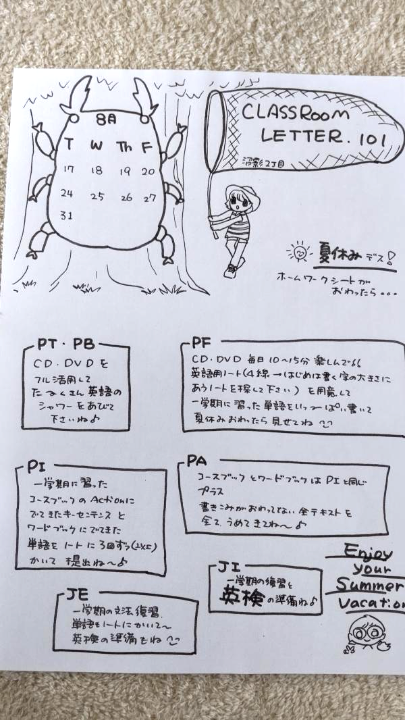 8月
T W Th F
17 18 19 20
24 25 26 27
31
CLASSROOM
LETTER.101
沼影2丁目
夏休みデス!
ホームワークシートが
おわったら...
PT・PB
CD.DVDを
フル活用して
たくさん英語の
シャワーをあびて
下さいね♪
PF
CD.DVD 毎日10〜15分 楽しんで
英語用ノート(4線→はじめは書く字の大きさに
あうノートを探して下さい)を用意して
一学期に習った単語をいっぱい書いて
夏休みおわったら見せてね
PI
一学期に習った
コースブックのActionに
でてきたキーセンテンスと
ワードブックにでてきた
単語をノートに3回ずつ(以上)
かいて提出ね〜♪
PA
コースブックとワードブックはPIと同じ
プラス
書きこみがおわってない全テキストを
全て うめてきてね〜♪
JI
一学期の復習と
英検の準備ね♪
JE
一学期の文法復習
単語もノートにかいて〜
英検の準備もね
Enjoy
your
Summer
vacation